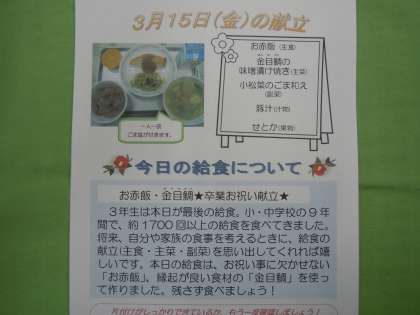 3月15日(金)の献立
お赤飯(主食)
金目鯛の
味噌漬け焼き(主菜)
小松菜のごま和え
(副菜)
豚汁(汁物)
せとか(果物)
一人一袋
ごま塩が付きます。
今日の給食について
お赤飯・金目鯛★卒業お祝い献立★
3年生は本日が最後の給食。小・中学校の9年
間で、約1700回以上の給食を食べてきました。
将来、自分や家族の食事を考えるときに、給食の
献立(主食・主菜・副菜)を思い出してくれれば嬉
しいです。本日の給食は、お祝い事に欠かせない
「お赤飯」、縁起が良い食材の「金目鯛」を使
って作りました。残さず食べましょう！
片付けがしっかりできているか、もう一度確認しましょう！